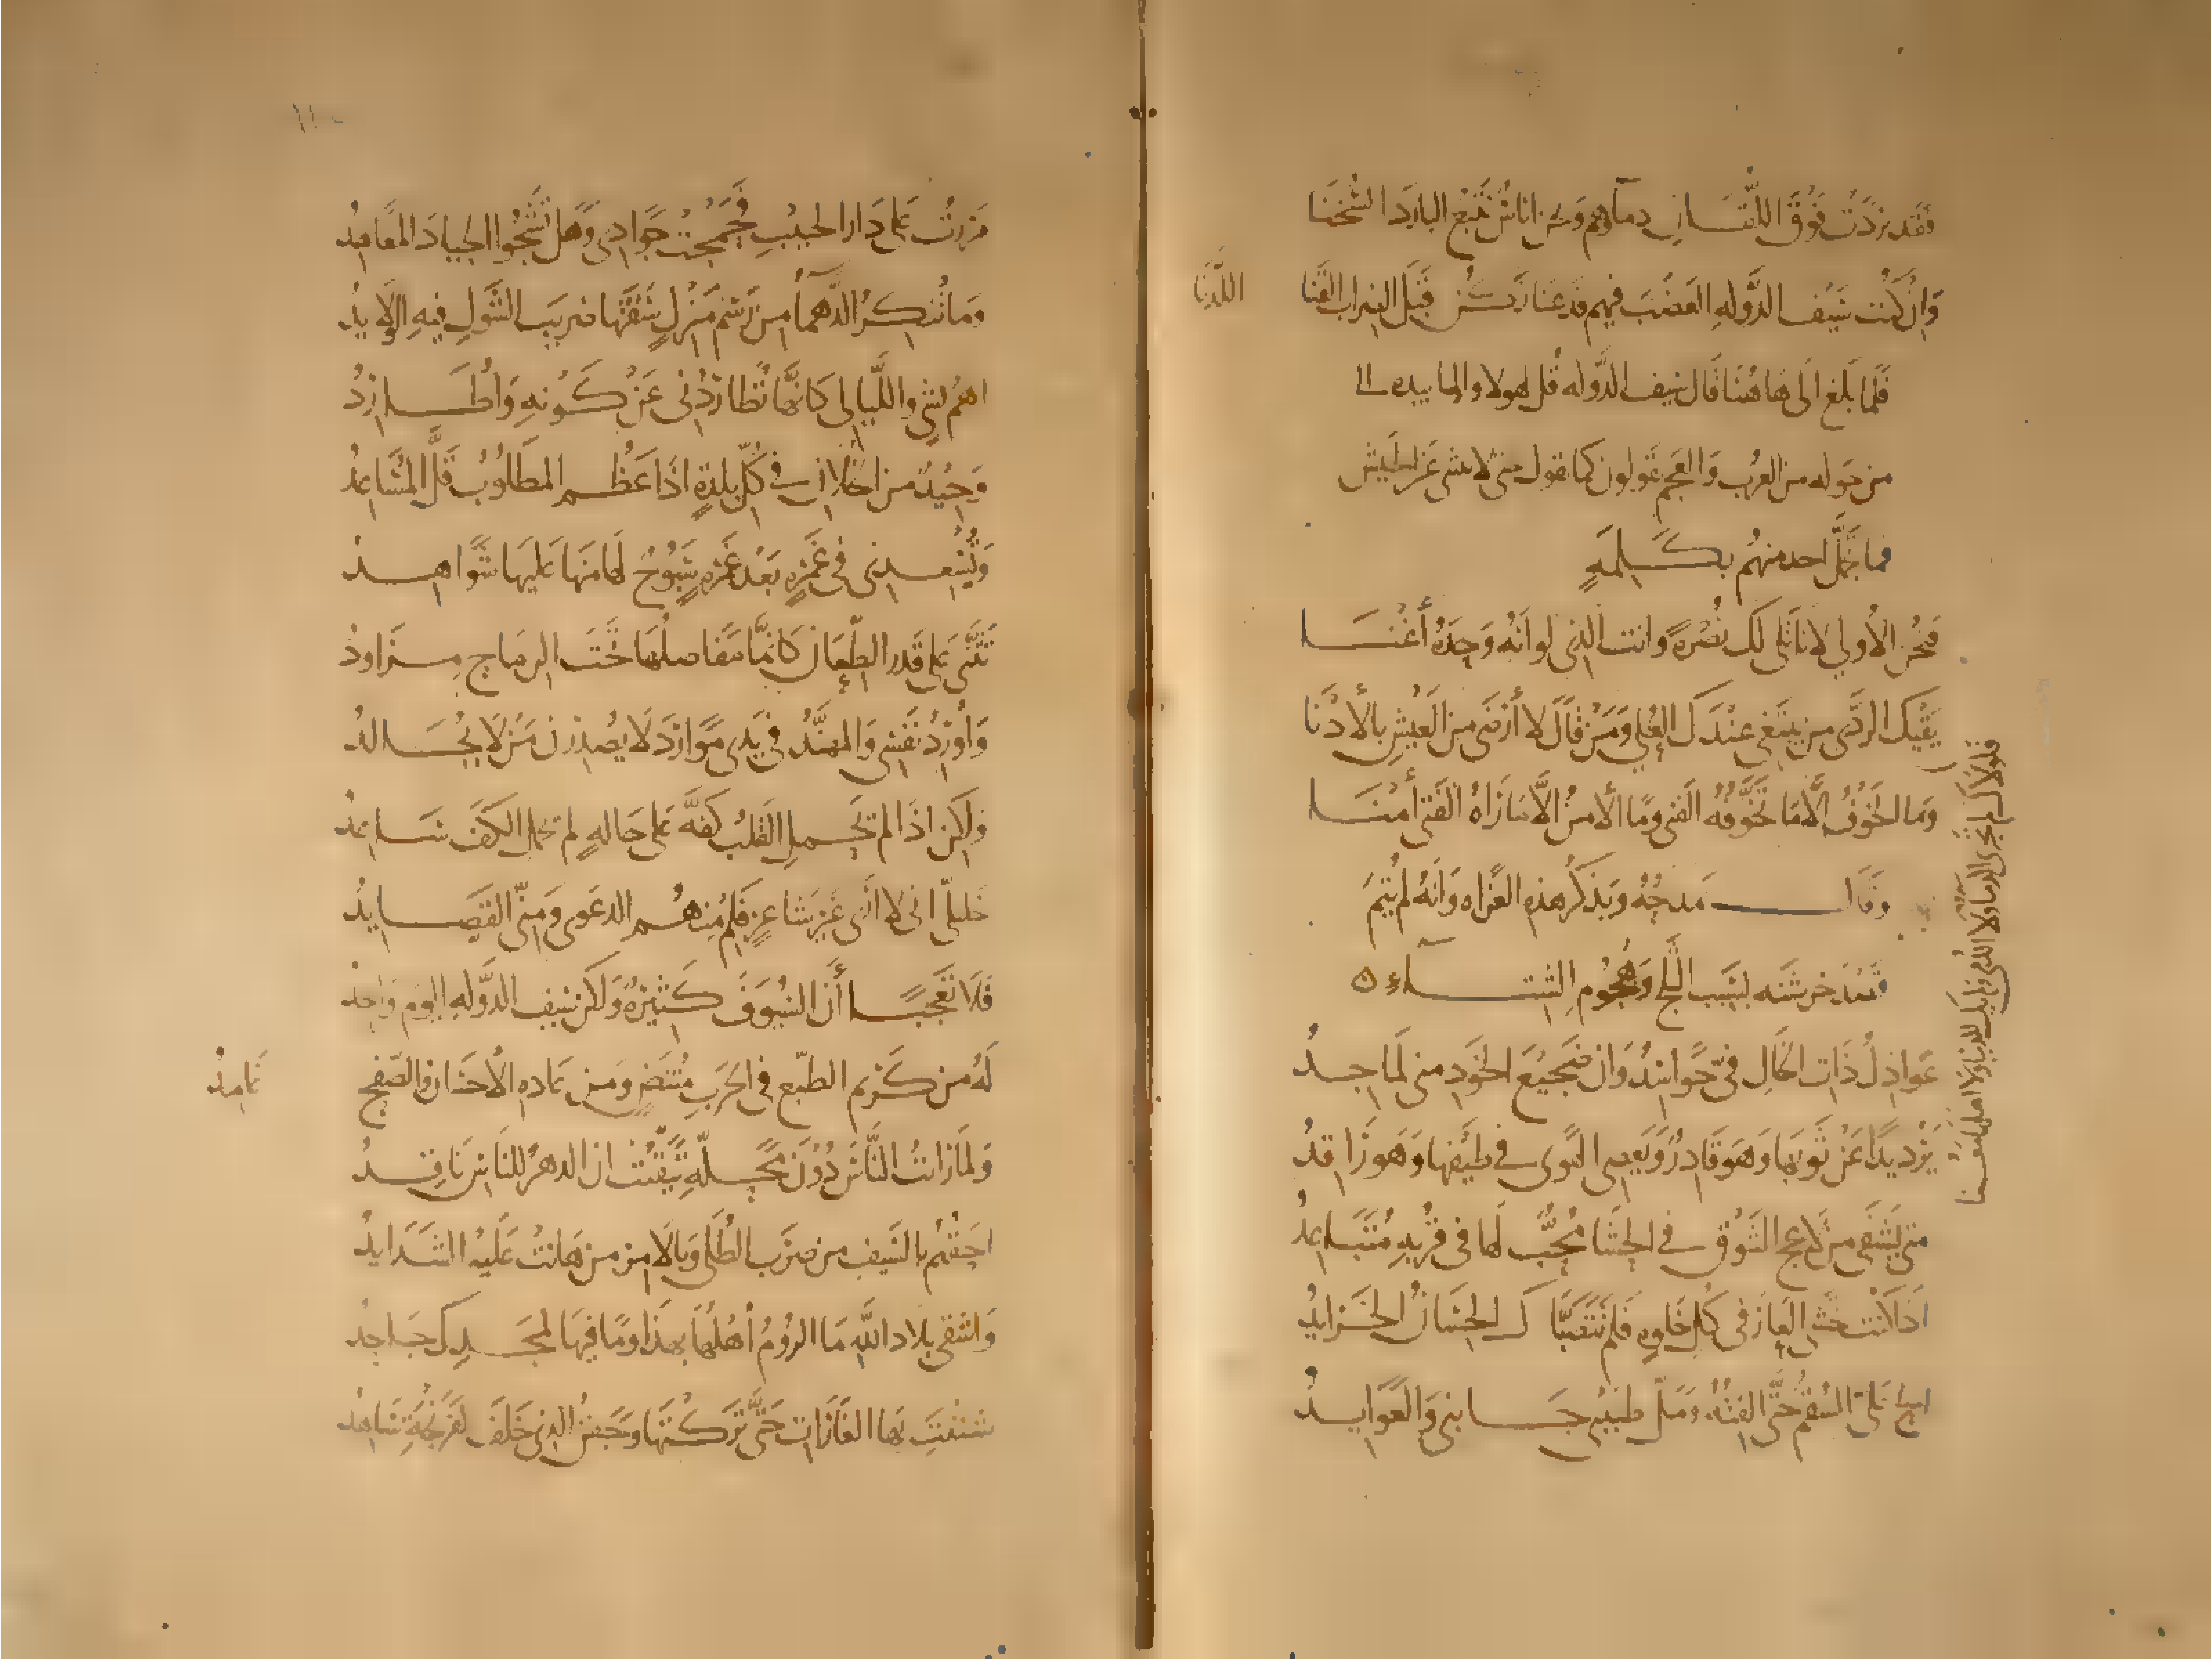 فَقَد بَرَدَت فَوقَ اللُّقَانِ دِمَآؤهم وَنحن اناسٌ نُتْبِعُ البارِدَ السُّخنَا
وَانْ كُنتَ سَيْفَ الدَّوْلهِ العَضْبَ فيهم فدعنا نكُن قَبْلَ الضراب القَنَا
اللُّدْنَا
فَلَّما بَلَغَ الَى هَاهُنَا قَالَ سَيف الدَّوله قُل لهولاء واوما بيده الى
من حَوله من العُربِ وَالعَجمِ يقولون كما تقول حتى لا ننثنى عن الجيش
فما تجَمَّلَ احد منهُم بِكَلِمَةٍ
فَنحْنُ الأُولى لا نَاتَلى لك نُصْرَةً وانت الذى لو أَنَّهُ وَحِدَهُ أَغْنَا
يَقِيْكَ الردَّى من يبتَغى عِنْدَكَ العُلى وَمَنْ قَالَ لا أرْضَى من العَيْشِ بالأَدْنَا
فلولاك لم تجرى الدمآء ولا اللُّهى ولم يك للدنيا ولا اهلها معْنا
وَمَا الخَوْفُ الَّا مَا تَخَوَّفَهُ الفَتى ومَا الأمنُ الَّا مَا رَآهُ الفَتى أَمْنَا
وَقَال يَمدحُهُ وَيَذكُر هذِهِ الغَزاه وَانَّهُ لم يُتِمَّ
قَصْدَ خرشَنَه لِسَبَبِ الثَّلج وَهُجُومِ الشِتآءِ
عَواذِلُ ذَاتِ الخَالِ فيَّ حَوَاسِدُ وَانَّ ضَجيْعَ الخَوْدِ منى لَمَاجِدُ
يَرُدُّ يدًا عَنْ ثَوْبِهَا وَهوَ قَادِرٌ وَيَعصِى الهَوى فى طَيْفِها وَهوَ رَاقِدُ
متى يَشتَفى من لَاعجِ الشَوْقِ فى الحشَا مُحِبٌّ لهَا فى قُرْبِهِ مُتَبَاعِدُ
اذا كُنتَ تخشَى العَارَ فى كُلِّ خَلوةٍ فَلِمْ تَتَصَبَّاكَ الحِسَانُ الخَرَايدُ
الحَّ عَلىَّ السُقْمُ حَتَّى الِفتُهُ وَمَلَّ طَبيبى جَانِبى وَالعَوَايِدُ
مَرَرْتُ عَلى دَارِ الحبيْبِ فحَمْحَمَت جَوادِى وَهَل تَشْجُوا الجيادَ المعَاهِدُ
وَمَا تُنكِرُ الدَّهمآءُ من رَسْمِ مَنْزِلٍ سَقَتْهَا ضَرِيبَ الشَّوْلِ فيهِ الوَلَايدُ
اهُمُّ بشىءٍ واللَّيَالِى كَانَّهَا تُطَارِدُنى عَنْ كَوْنِهِ وَاُطَارِدُ
وَحِيْدٌ من الخُلَّانِ فى كُلِّ بلدَةٍ اذَا عَظُمَ المطَلُوبُ قَلَّ المسَاعِدُ
وَتُسْعِدُنى فى غَمْرَةٍ بَعْدَ غَمْرَةٍ سَبُوْحٌ لهَا مِنْهَا عَلَيهَا شَوَاهِدُ
تَثَنَّى عَلى قَدرِ الطِّعَانِ كَانَّمَا مَفَاصِلُهَا تَحْتَ الرِمَاحِ مَرَاوِدُ
وَأُوْرِدُ نَفْسى وَالمهَنَّدُ فى يَدِى مَوَارِدَ لَا يُصْدِرْنَ مَنْ لَا يُجَالِدُ
ولَكِن اذَا لم يَحمِلِ القَلْبُ كفَّهُ عَلى حَالةٍ لم تحمِلِ الكَفَّ سَاعِدُ
خَلِيلَىَّ انى لا ارَى غَيرَ شَاعرٍ فَلِمْ مِنهُمُ الدعَوى وَمِنّى القَصَايِدُ
فَلَا تَعْجَبَا أَنَّ السُيُوَفَ كَثِيْرةٌ وَلكنَّ سَيفَ الدَّولهِ اليوم وَاحِدُ
لَهُ من كَرِيمِ الطَّبعِ فى الحَربِ مُنْتَضٍ وَمن عَادهِ الأحسَان وَالصَفْحِ
غَامِدُ
وَلمَّا رَايتُ النَّاسَ دُوْنَ مَحَلِّهِ تَيَقَّنْتُ انَّ الدهرَ للنَاسِ نَاقِدُ
احَقُّهُمُ بالسَيفِ من ضَرَبَ الطُلَى وَبالامنِ من هَانَتْ عَلَيهِ الشَدَايدُ
وَاشقَى بلَادِ اللَّهِ مَا الرُوْمُ أَهْلُهَا بهذَا وَمَا فيهَا لِمَجدِكَ جَاحِدُ
شَنَنْتَ بِهَا الغَارَاتِ حَتَّى تَرَكْتَهَا وَجَفنُ الذى خَلفَ الفَرَنْجَةِ سَاهِدُ